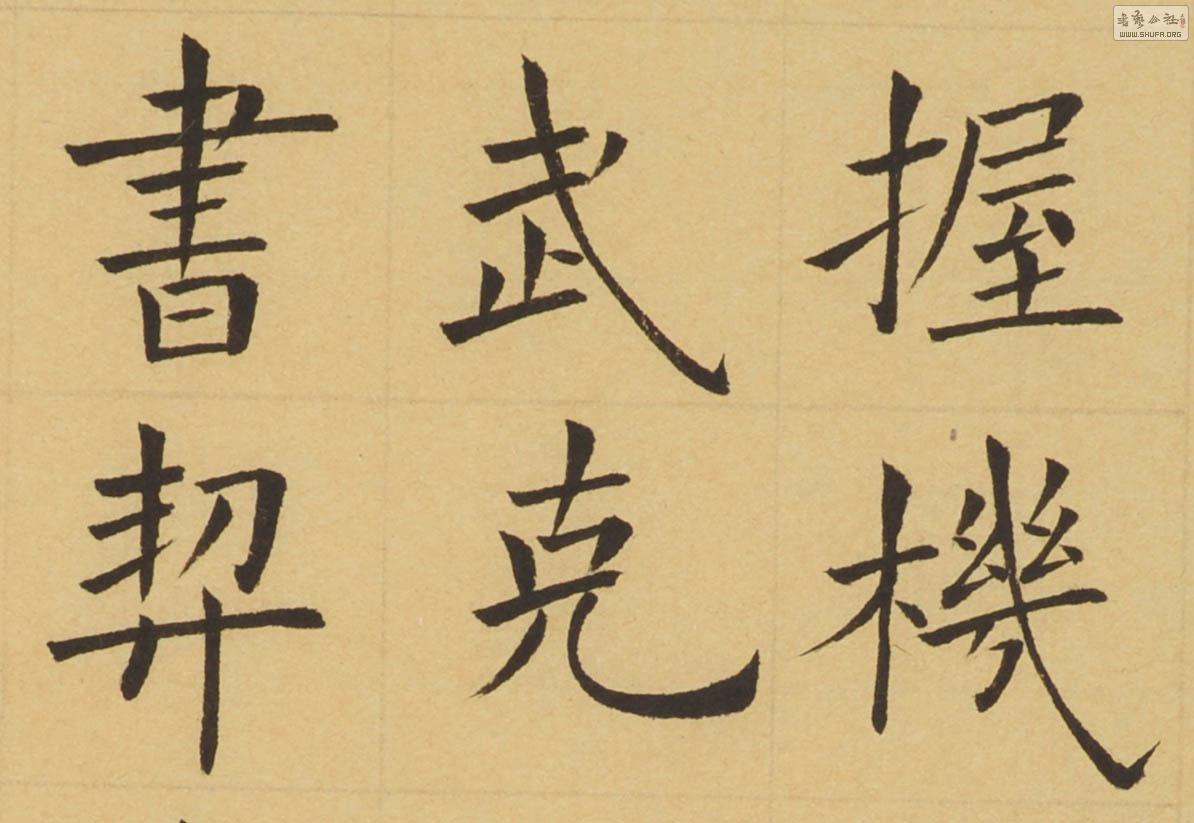 握機
武克
書契
書藝公社
WWW.SHUFA.ORG